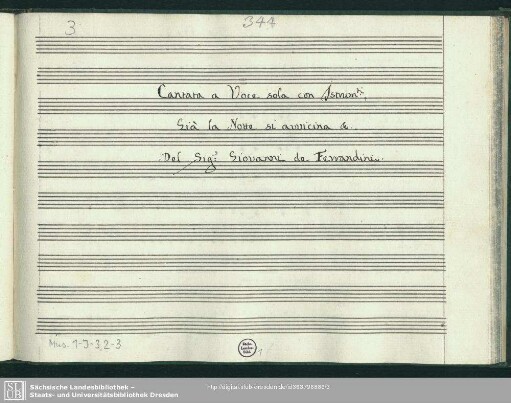 3
344
Cantata a Voce sola con Istromti.
Già la Notte si avvicina &.
Del Sigr. Giovanni de Ferrandini.
Mus. 1-J-3,2-3
1
Sächsische Landesbibliothek –
Staats- und Universitätsbibliothek Dresden
SLUB